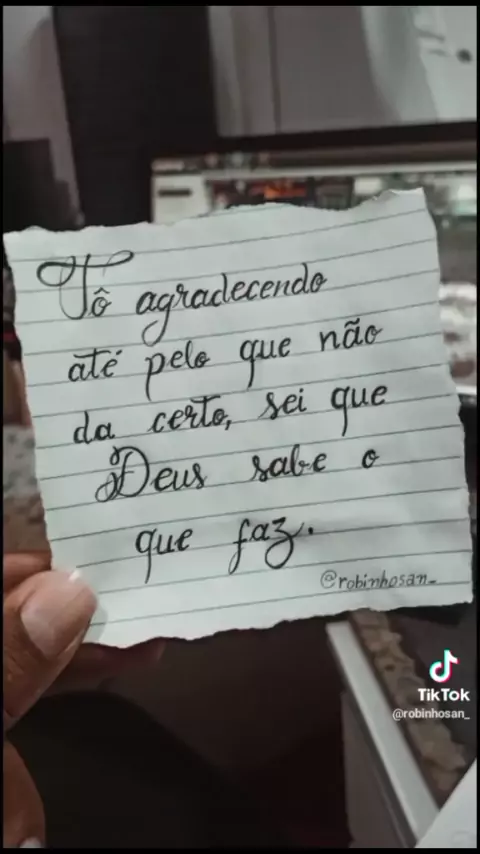 Tô agradecendo
até pelo que não
da certo, sei que
Deus sabe o
que faz.
@robinhosan_
TikTok
@robinhosan_